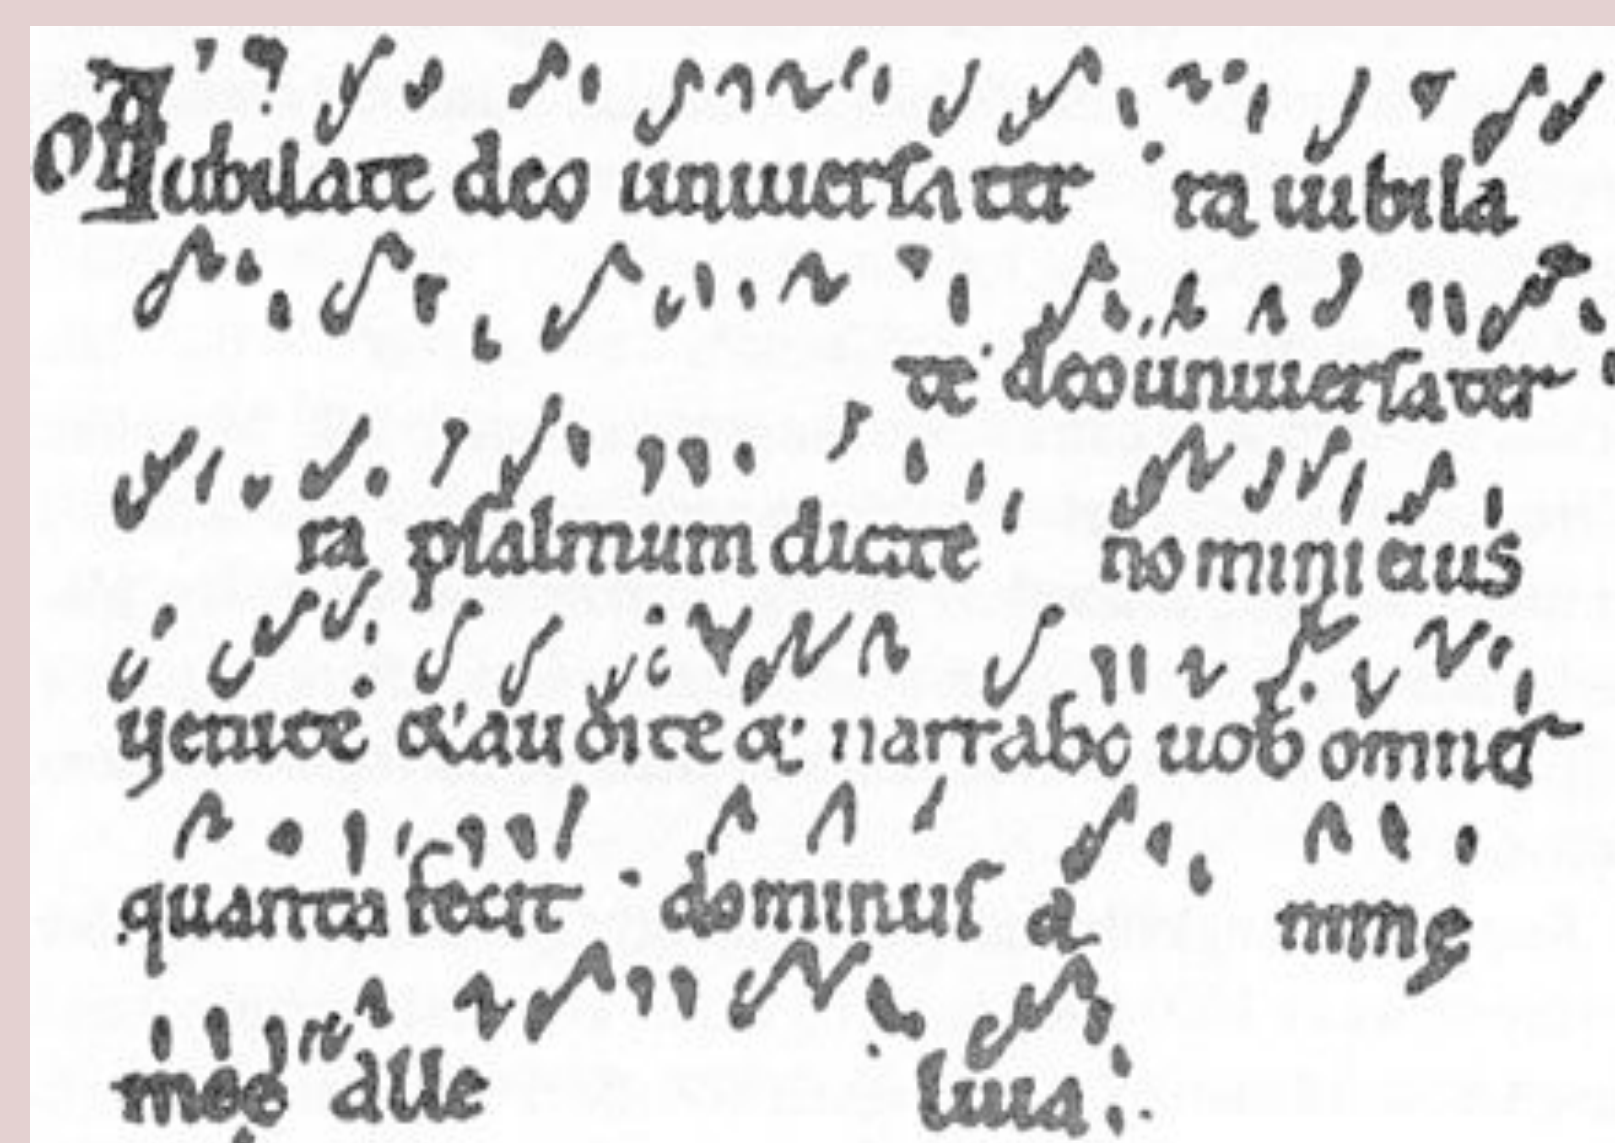 OF Iubilate deo uniuersa ter ra iubila
te deo uniuersa ter
ra psalmum dicite nomini eius
uenite & audite & narrabo uob omnes
quanta fecit dominus a nime
mee alle luia